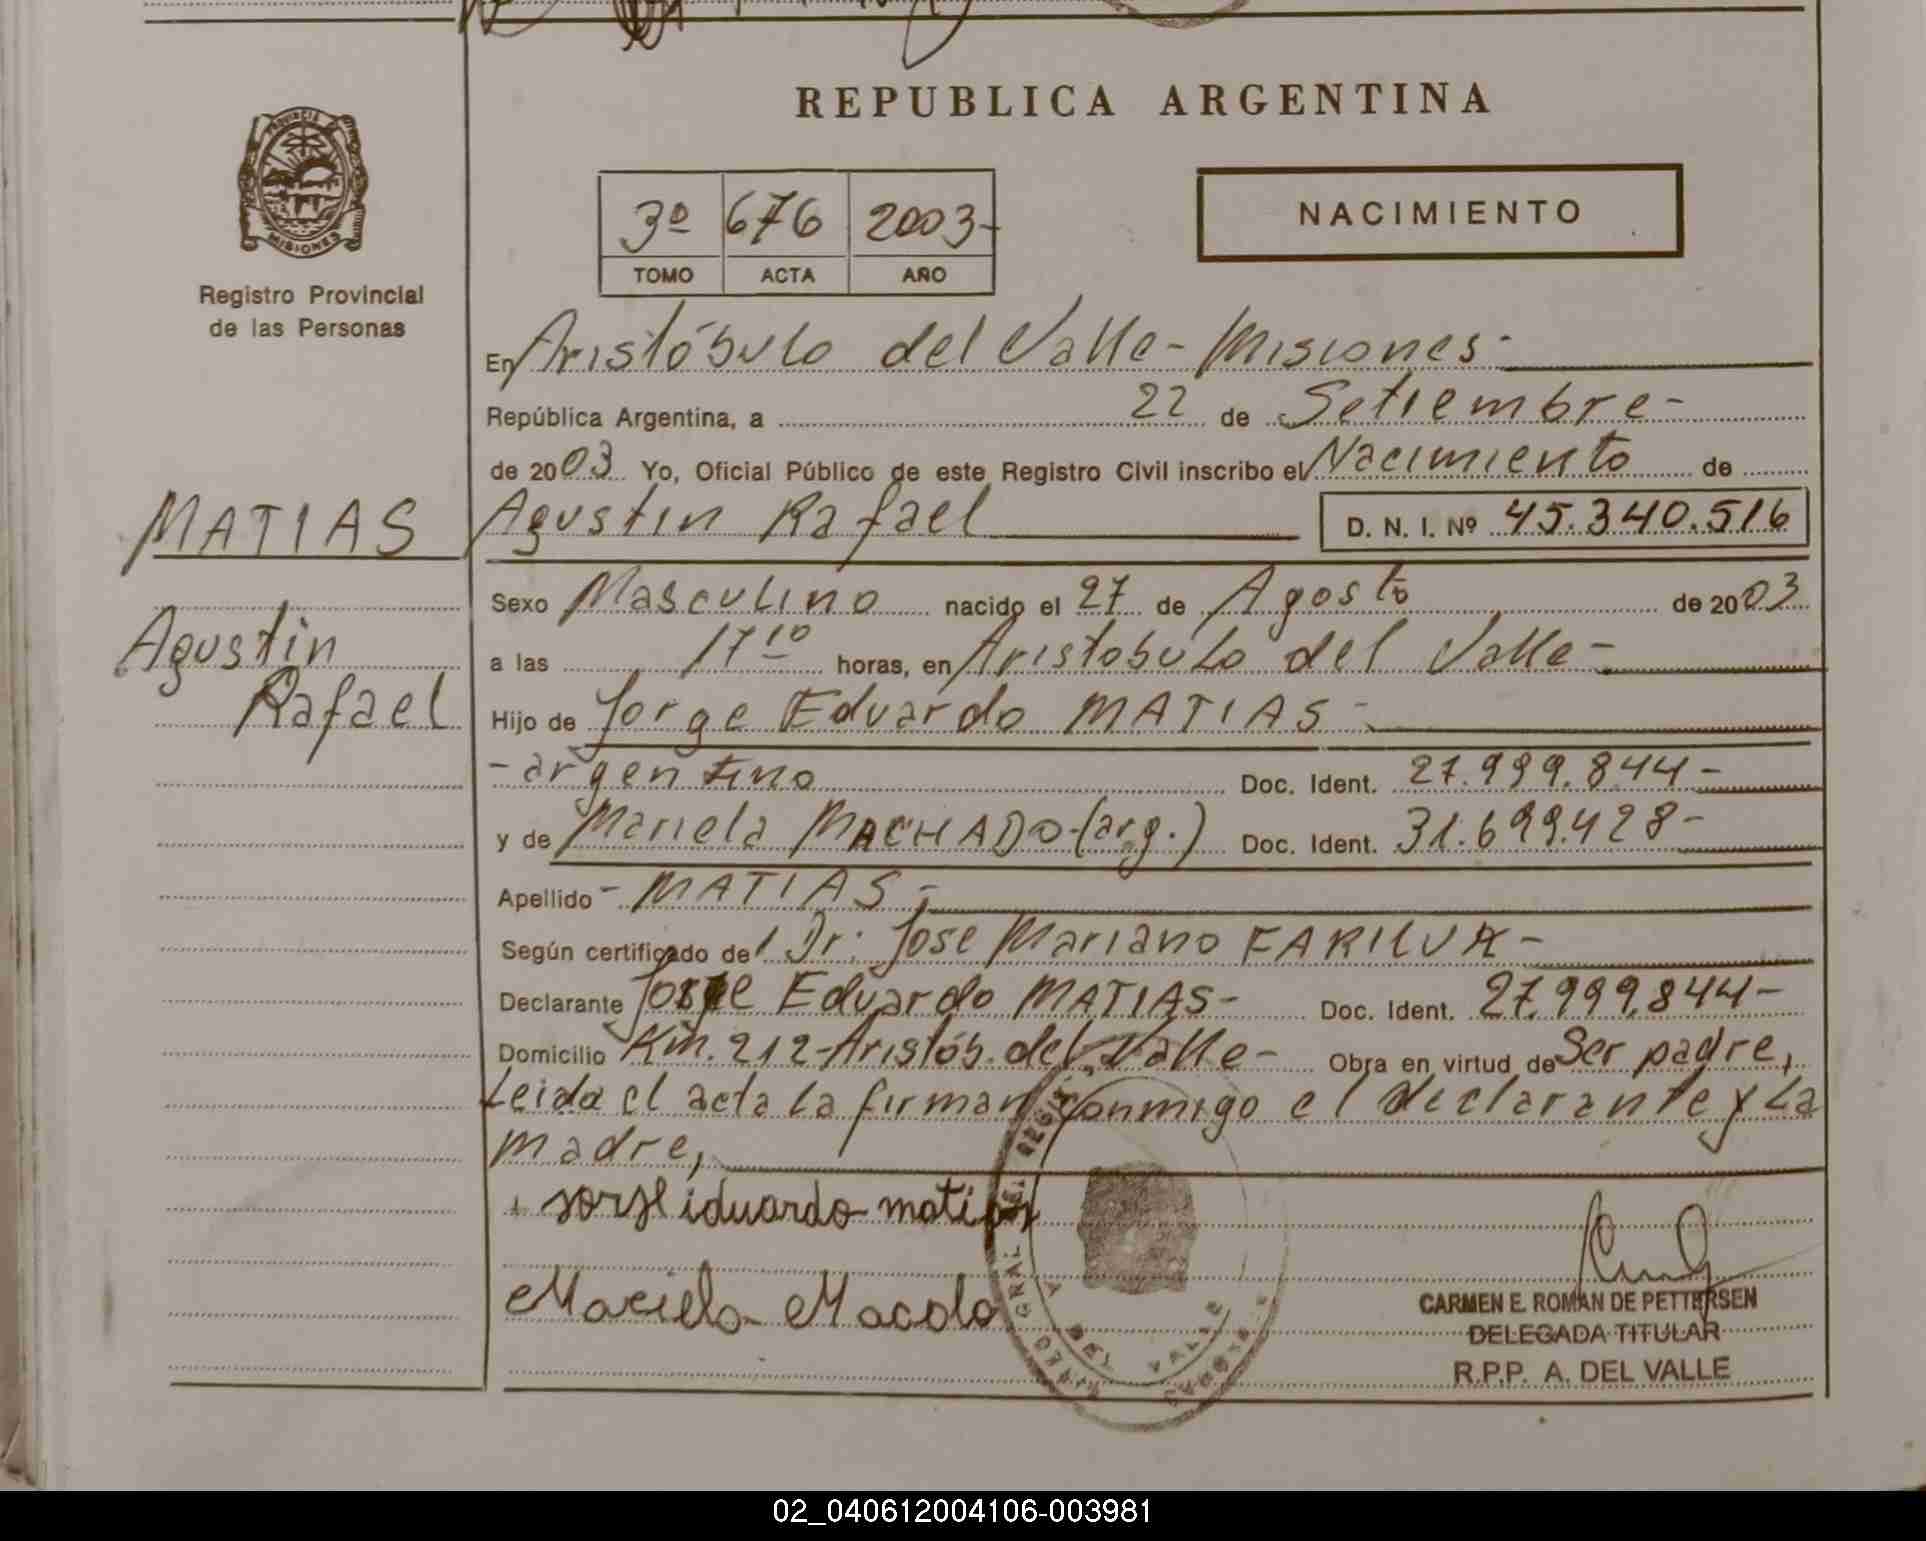 REPUBLICA ARGENTINA
PROVINCIA
MISIONES
Registro Provincial
de las Personas
3º 676 2003-
TOMO ACTA AÑO
NACIMIENTO
En Aristóbulo del Valle - Misiones -
República Argentina, a 22 de Setiembre -
de 2003 Yo, Oficial Público de este Registro Civil inscribo el Nacimiento de
MATIAS
Agustin Rafael D. N. I. Nº 45.340.516
Agustin
Rafael
Sexo Masculino nacido el 27 de Agosto de 2003
a las 17 10 horas, en Aristobulo del Valle -
Hijo de Jorge Eduardo MATIAS -
- argentino Doc. Ident. 27.999.844 -
y de Mariela MACHADO - (arg.) Doc. Ident. 31.699.428 -
Apellido - MATIAS -
Según certificado del Dr: Jose Mariano
Declarante Jorge Eduardo MATIAS - Doc. Ident. 27.999.844 -
Domicilio Km. 212 - Aristób. del Valle - Obra en virtud de Ser padre,
Leida el acta la firman conmigo el declarante y La
madre,
+ Jorge iduardo matias
CARMEN E. ROMAN DE PETTERSEN
DELEGADA TITULAR
R.P.P. A. DEL VALLE
DEL VALLE
02_040612004106-003981